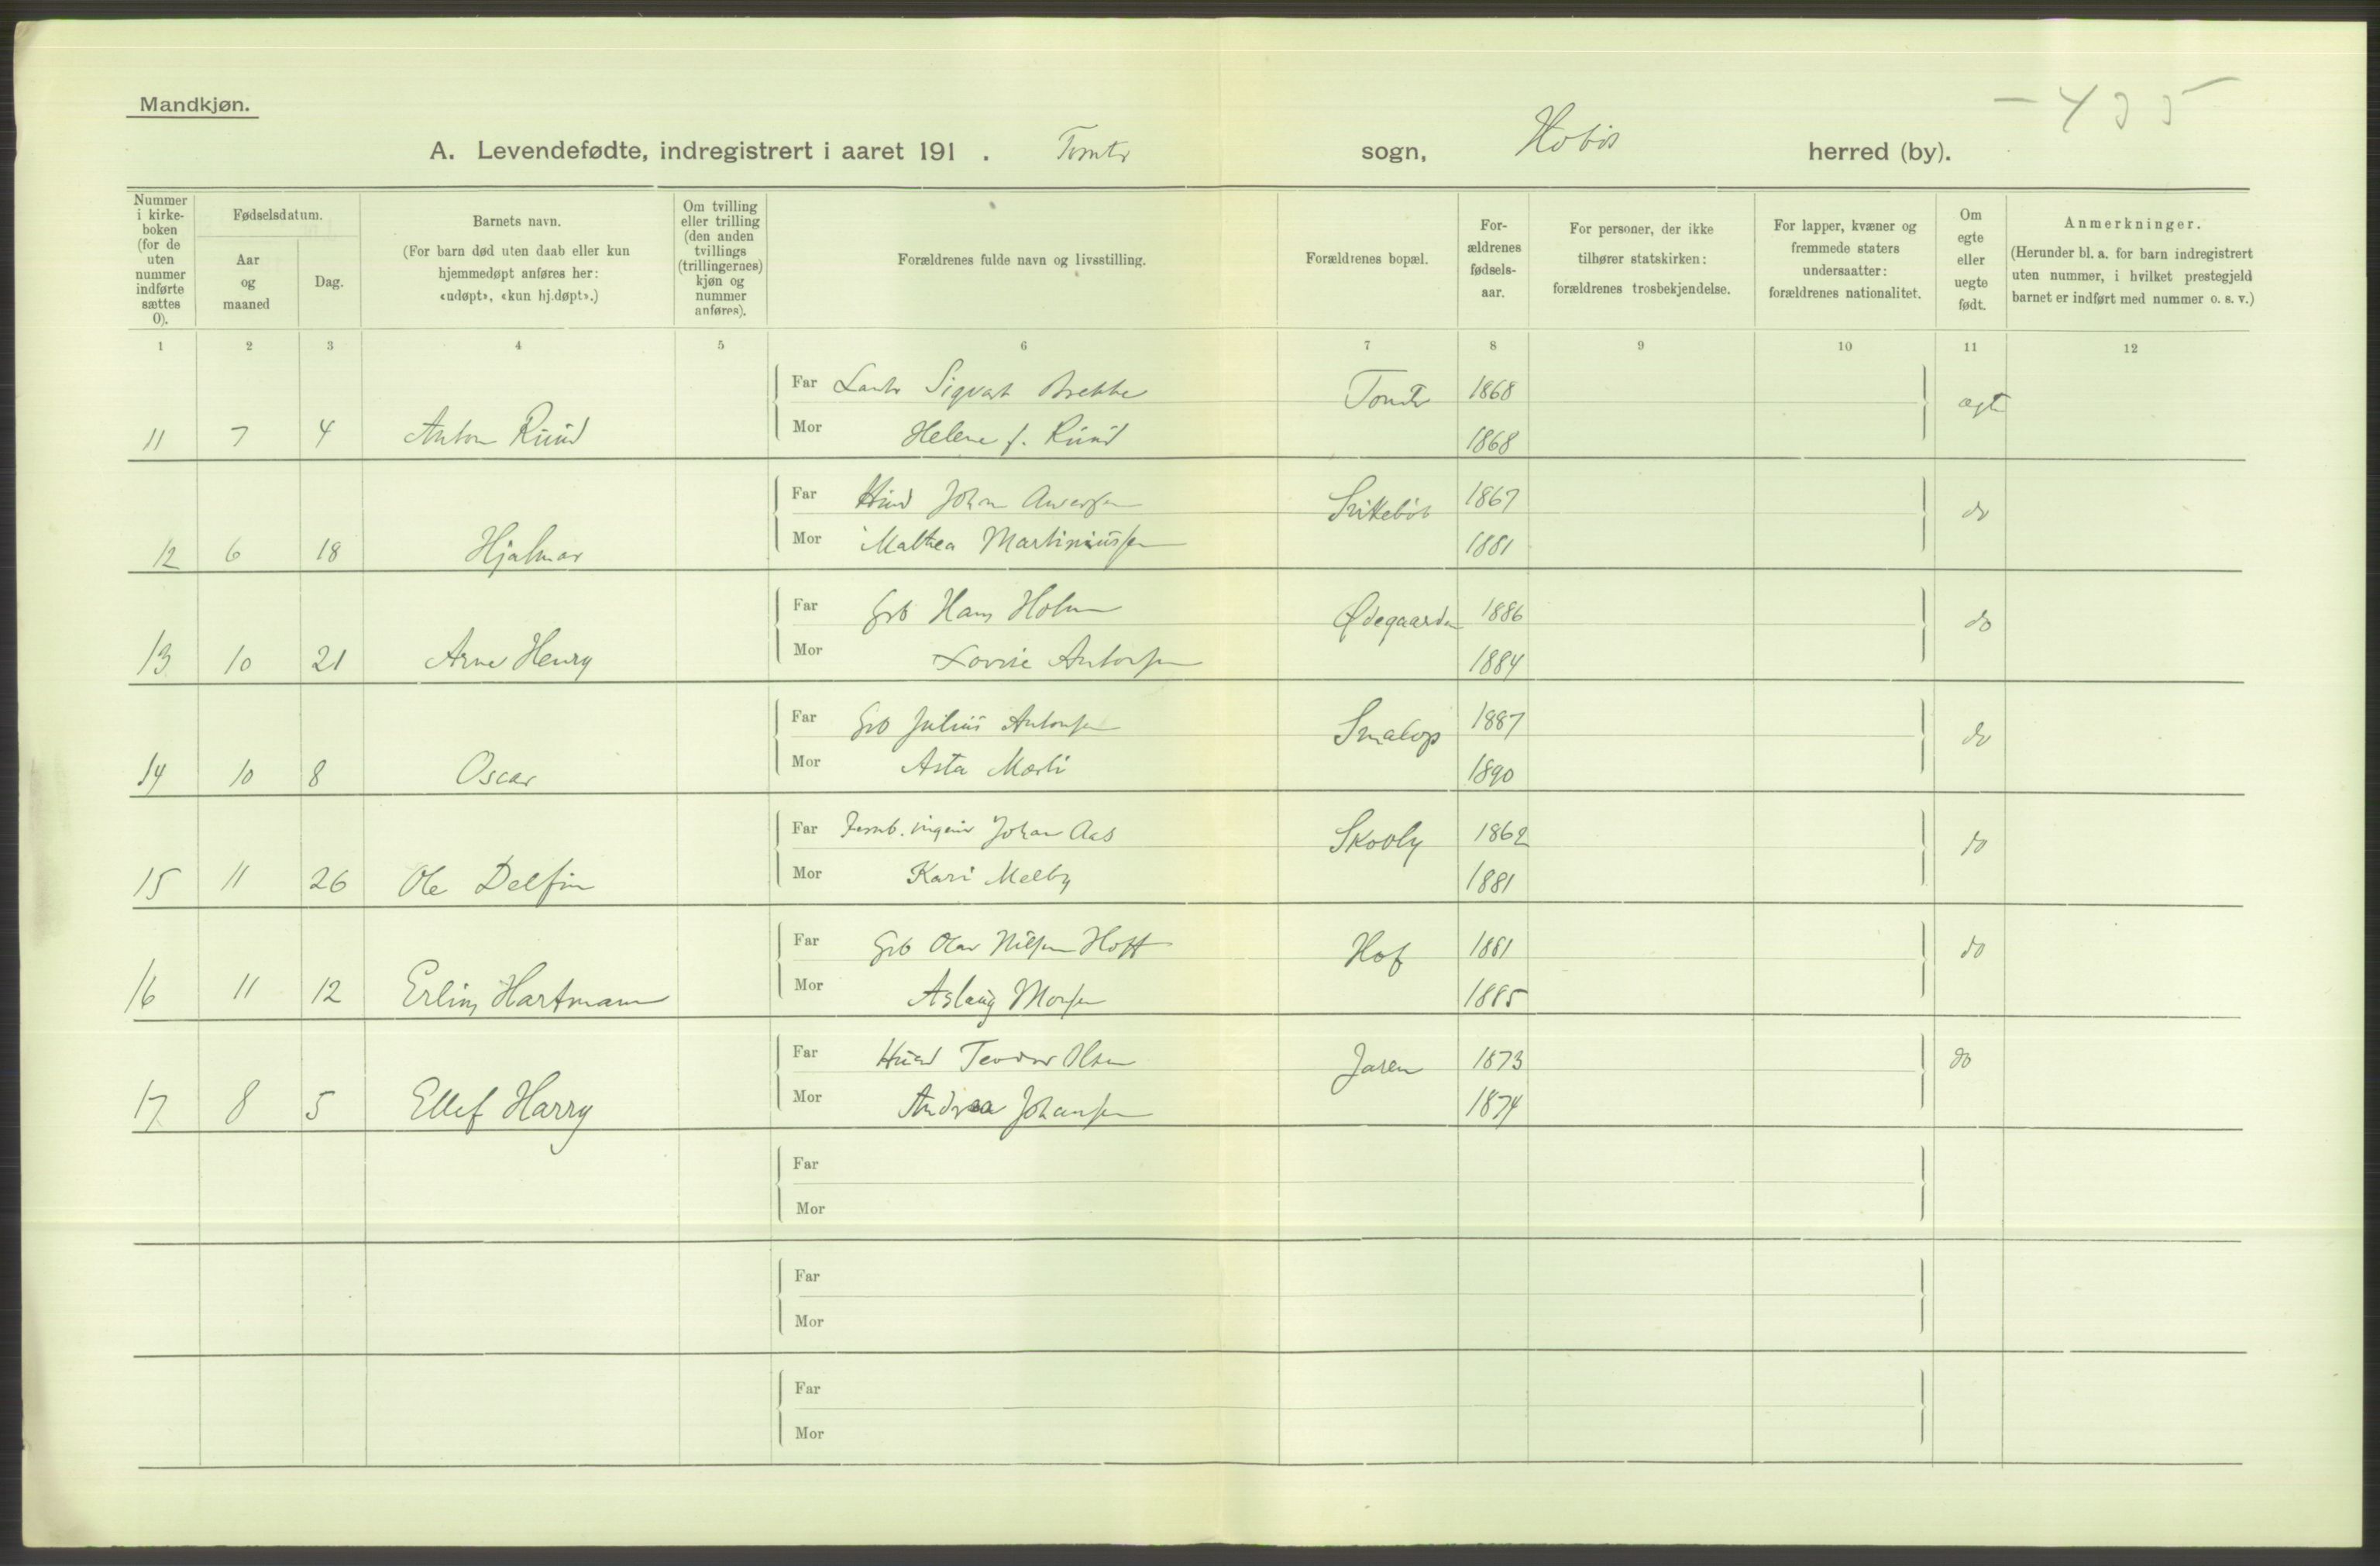 Mandkjøn.
- 435
A. Levendefødte, indregistrert i aaret 191 . Tomter sogn, Hobøl herred (by).
Nummer i kirke-boken (for de uten nummer indførte sættes 0).
Fødselsdatum.
Aar og maaned
Dag.
Barnets navn.
(For barn død uten daab eller kun hjemmedøpt anføres her: «udøpt», «kun hj.døpt».)
Om tvilling eller trilling (den anden tvillings (trillingernes) kjøn og nummer anføres).
Forældrenes fulde navn og livsstilling.
Forældrenes bopæl.
For-ældrenes fødsels-aar.
For personer, der ikke tilhører statskirken: forældrenes trosbekjendelse.
For lapper, kvæner og fremmede staters undersaatter: forældrenes nationalitet.
Om egte eller uegte født.
Anmerkninger.
(Herunder bl. a. for barn indregistrert uten nummer, i hvilket prestegjeld barnet er indført med nummer o. s. v.)
1 2 3 4 5 6 7 8 9 10 11 12
Far Sigvart Brekke Tomter 1868 ægte
11 7 4 Anton Ruud Mor Helene f. Ruud 1868
Far Johan 1867 do
12 6 18 Hjalmar Mor Mathea Martiniussen 1881
Far Grb Hans Holm Ødegaarden 1886 do
13 10 21 Arne Henry Mor Lovise Antonsen 1884
Far Grb Julius Antonsen Smalop 1887 do
14 10 8 Oscar Mor Asta Mørli 1890
Far Jernb. ingeniør Johan Aas Skovly 1862 do
15 11 26 Ole Delfin Mor Kari Melby 1881
Far Grb Olav Nilsen Hoff Hof 1881 do
16 11 12 Erling Hartmann Mor Aslaug Monsen 1885
Far Teodor Olsen Jaren 1873 do
17 8 5 Ellef Harry Mor Andrea Johansen 1874
Far
Mor
Far
Mor
Far
Mor